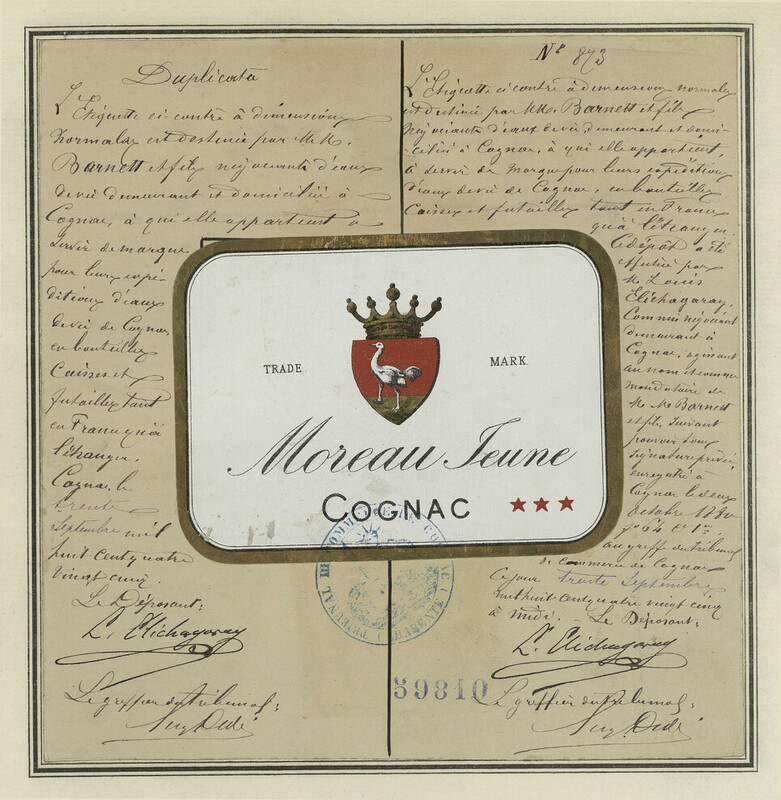 Duplicata
L'Etiquette ci contre à dimensions
Normales est destinée par M.M.
Barnett et fils négociants d'eaux
de vie demeurant et domiciliés à
Cognac, à qui elle appartient à
servir de marque
pour leurs expé-
ditions d'eaux
de vie de Cognac,
en bouteilles
Caisses et
futailles tant
en France qu'à
l'étranger.
Cognac, le
trente
Septembre mil
huit cent quatre
vingt cinq.
Le Déposant;
L. Elichagaray
Le greffier du tribunal;
Dedé
N° 873
L'Etiquette ci contre à dimensions normales
est destinée par M.M. Barnett et fils
Négociants d'eaux de vie, demeurant et domi-
-ciliés à Cognac, à qui elle appartient,
à servir de marque pour leurs expéditions
d'eaux de vie de Cognac, en bouteilles
Caisses et futailles tant en France
qu'à l'étranger.
Le dépôt a été
effectué par
M. Louis
Elichagaray,
Commis négociant
demeurant à
Cognac, agissant
au nom et comme
mandataire de
M. M. Barnett
et fils, suivant
pouvoir sous
signature privée,
enregistré à
Cognac le deux
Octobre 1880
f° 64 c 1re,
au greffe du tribunal
de commerce de Cognac
Ce jour trente Septembre
mil huit cent quatre vingt cinq
à midi. - Le Déposant;
L. Elichagaray
Le greffier du tribunal;
Dedé
TRADE MARK.
Moreau Jeune
COGNAC
TRIBUNAL DE COMMERCE DE COGNAC (CHARENTE)
59810